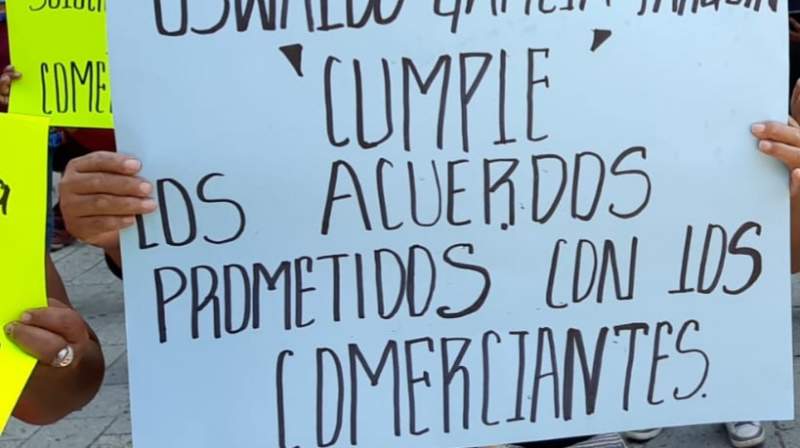 OSWALDO GARCIA
" CUMPLE "
LOS ACUERDOS
PROMETIDOS CON LOS
COMERCIANTES.
COME